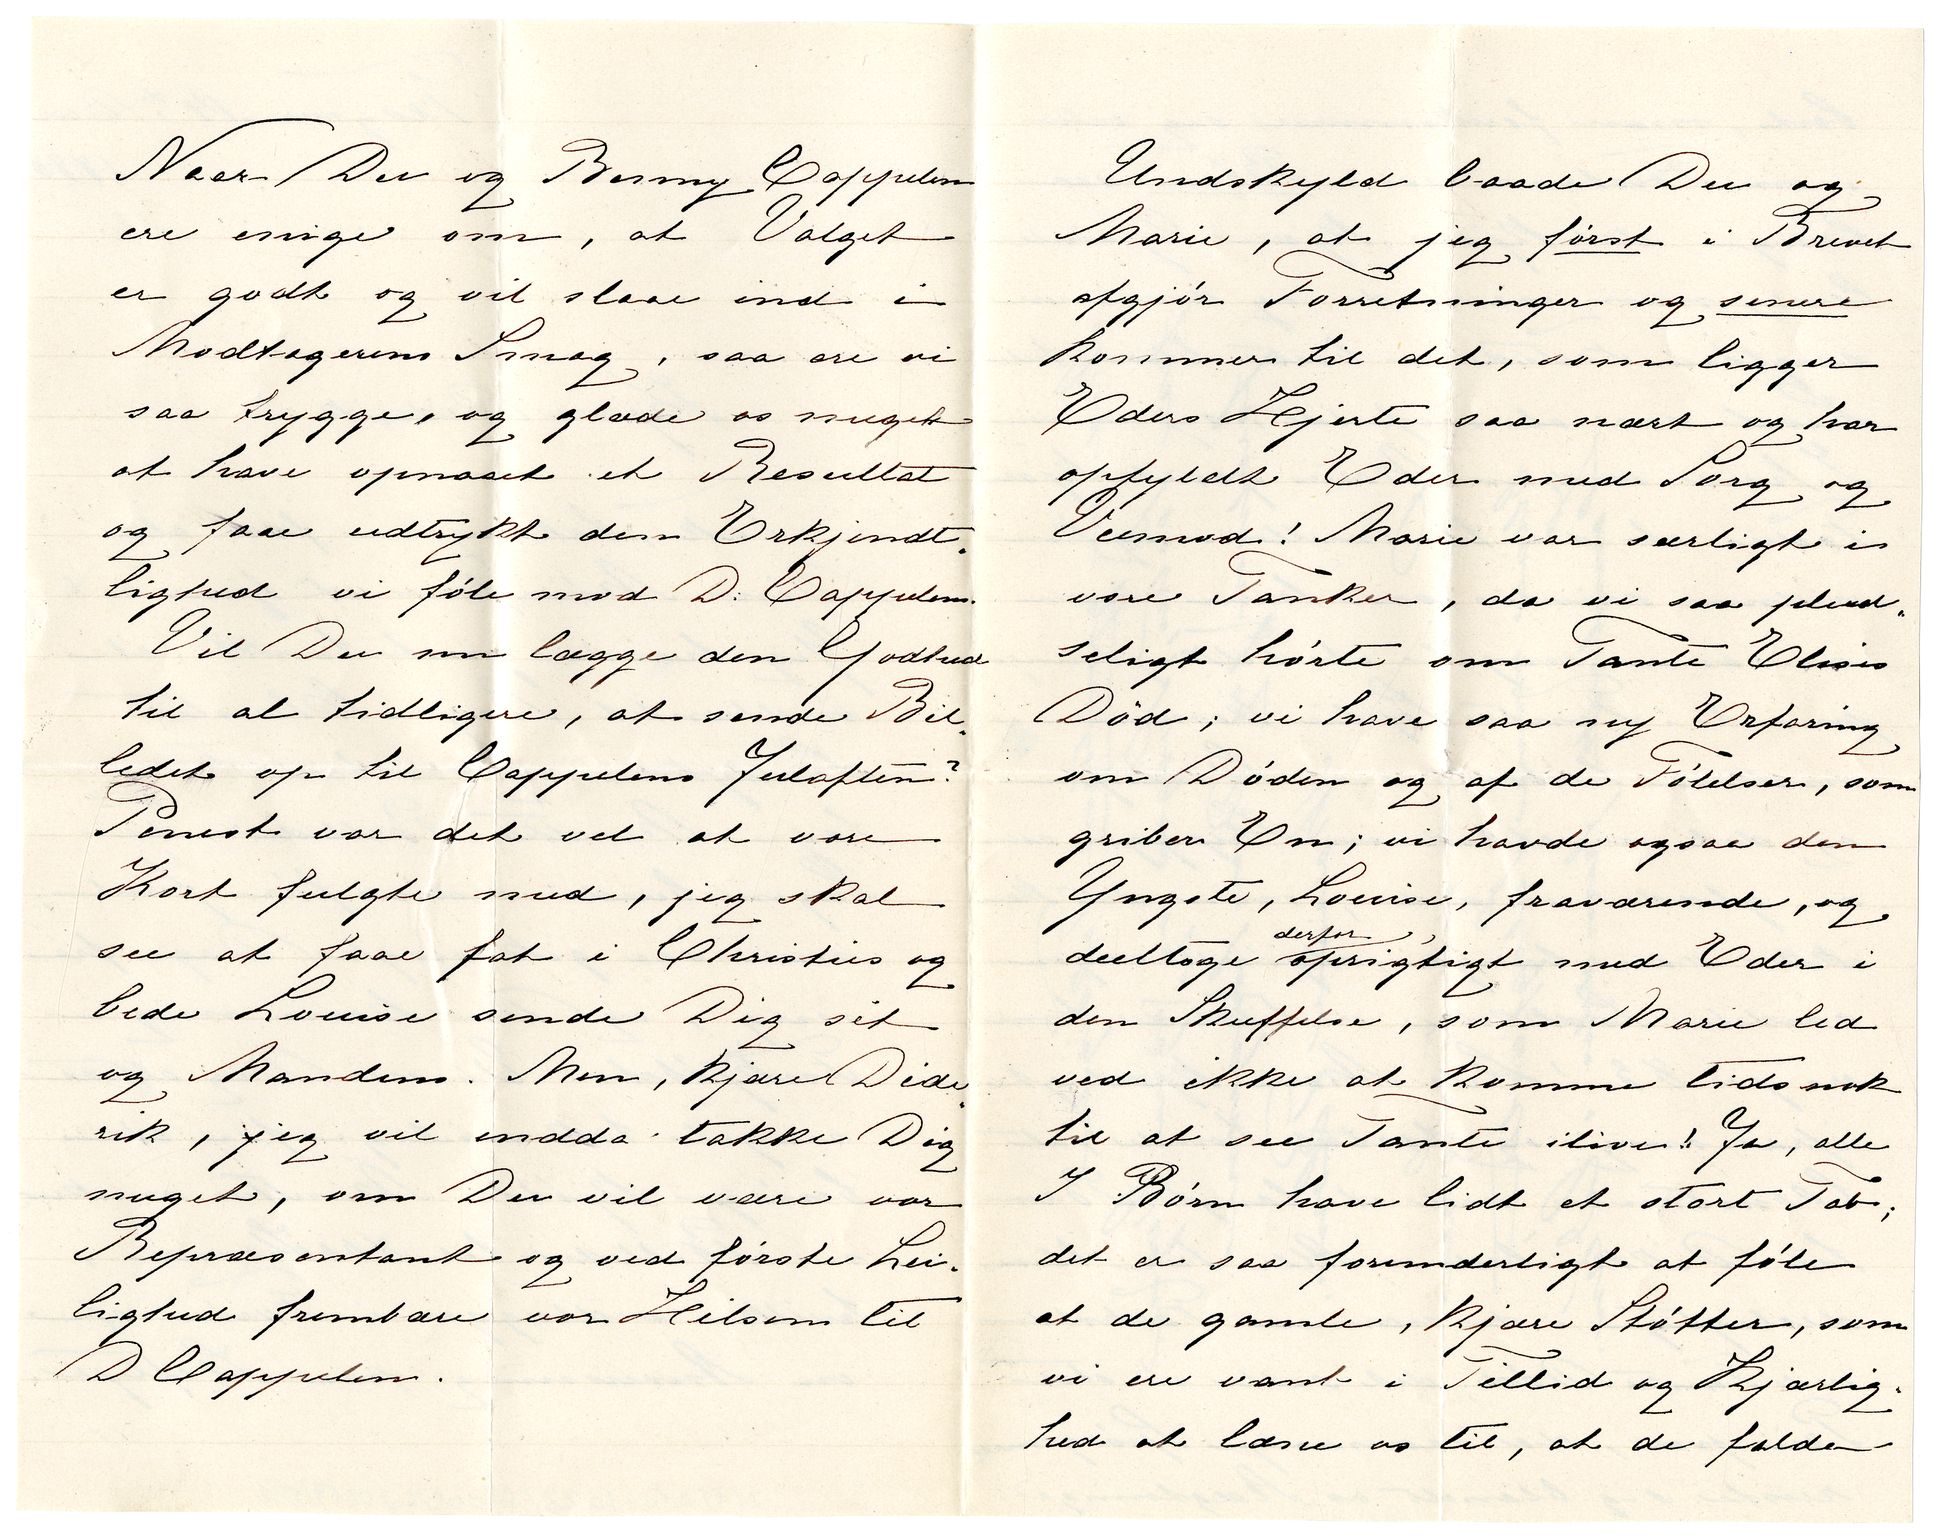 Naar Du og Benny Cappelen
ere enige om, at Valget
er godt og vil slaae ind i
Modtagerens Smag, saa ere vi
saa trygge, og glæde os meget
at have opnaaet et Resultat
og faae udtrykt den Erkjendt-
lighed vi föle mod D. Cappelen.
Vil Du nu lægge den Godhed
til al tidligere, at sende Bil-
ledet op til Cappelens Juleaften?
Penest var det vel at vore
Kort fulgte med, jeg skal
see at faae fat i Christies og
bede Louise sende Dig sit
og Mandens. Men, kjære Dide-
rik, jeg vil endda takke Dig
meget, om Du vil være vor
Repræsentant og ved förste Lei-
lighed frembære vor Hilsen til
D Cappelen.
Undskyld baade Du og
Marie, at jeg först i Brevet
afgjör Forretninger og senere
kommer til det, som ligger
Eders Hjerte saa nært og har
opfyldt Eder med Sorg og
Veemod! Marie var særligt i
vore Tanker, da vi saa plud-
seligt hörte om Tante Elises
Död; vi have saa ny Erfaring
om Döden og af de Fölelser, som
griber En; vi havde ogsaa den
Yngste, Louise, fraværende, og
deeltoge derfor oprigtigt med Eder i
den Skuffelse, som Marie led
ved ikke at komme tidsnok
til at see Tante ilive! Ja, alle
I Börn have lidt et stort Tab;
det er saa forunderligt at föle
at de gamle, kjære Stötter, som
vi ere vant i Tillid og Kjærlig-
hed at læne os til, at de falde